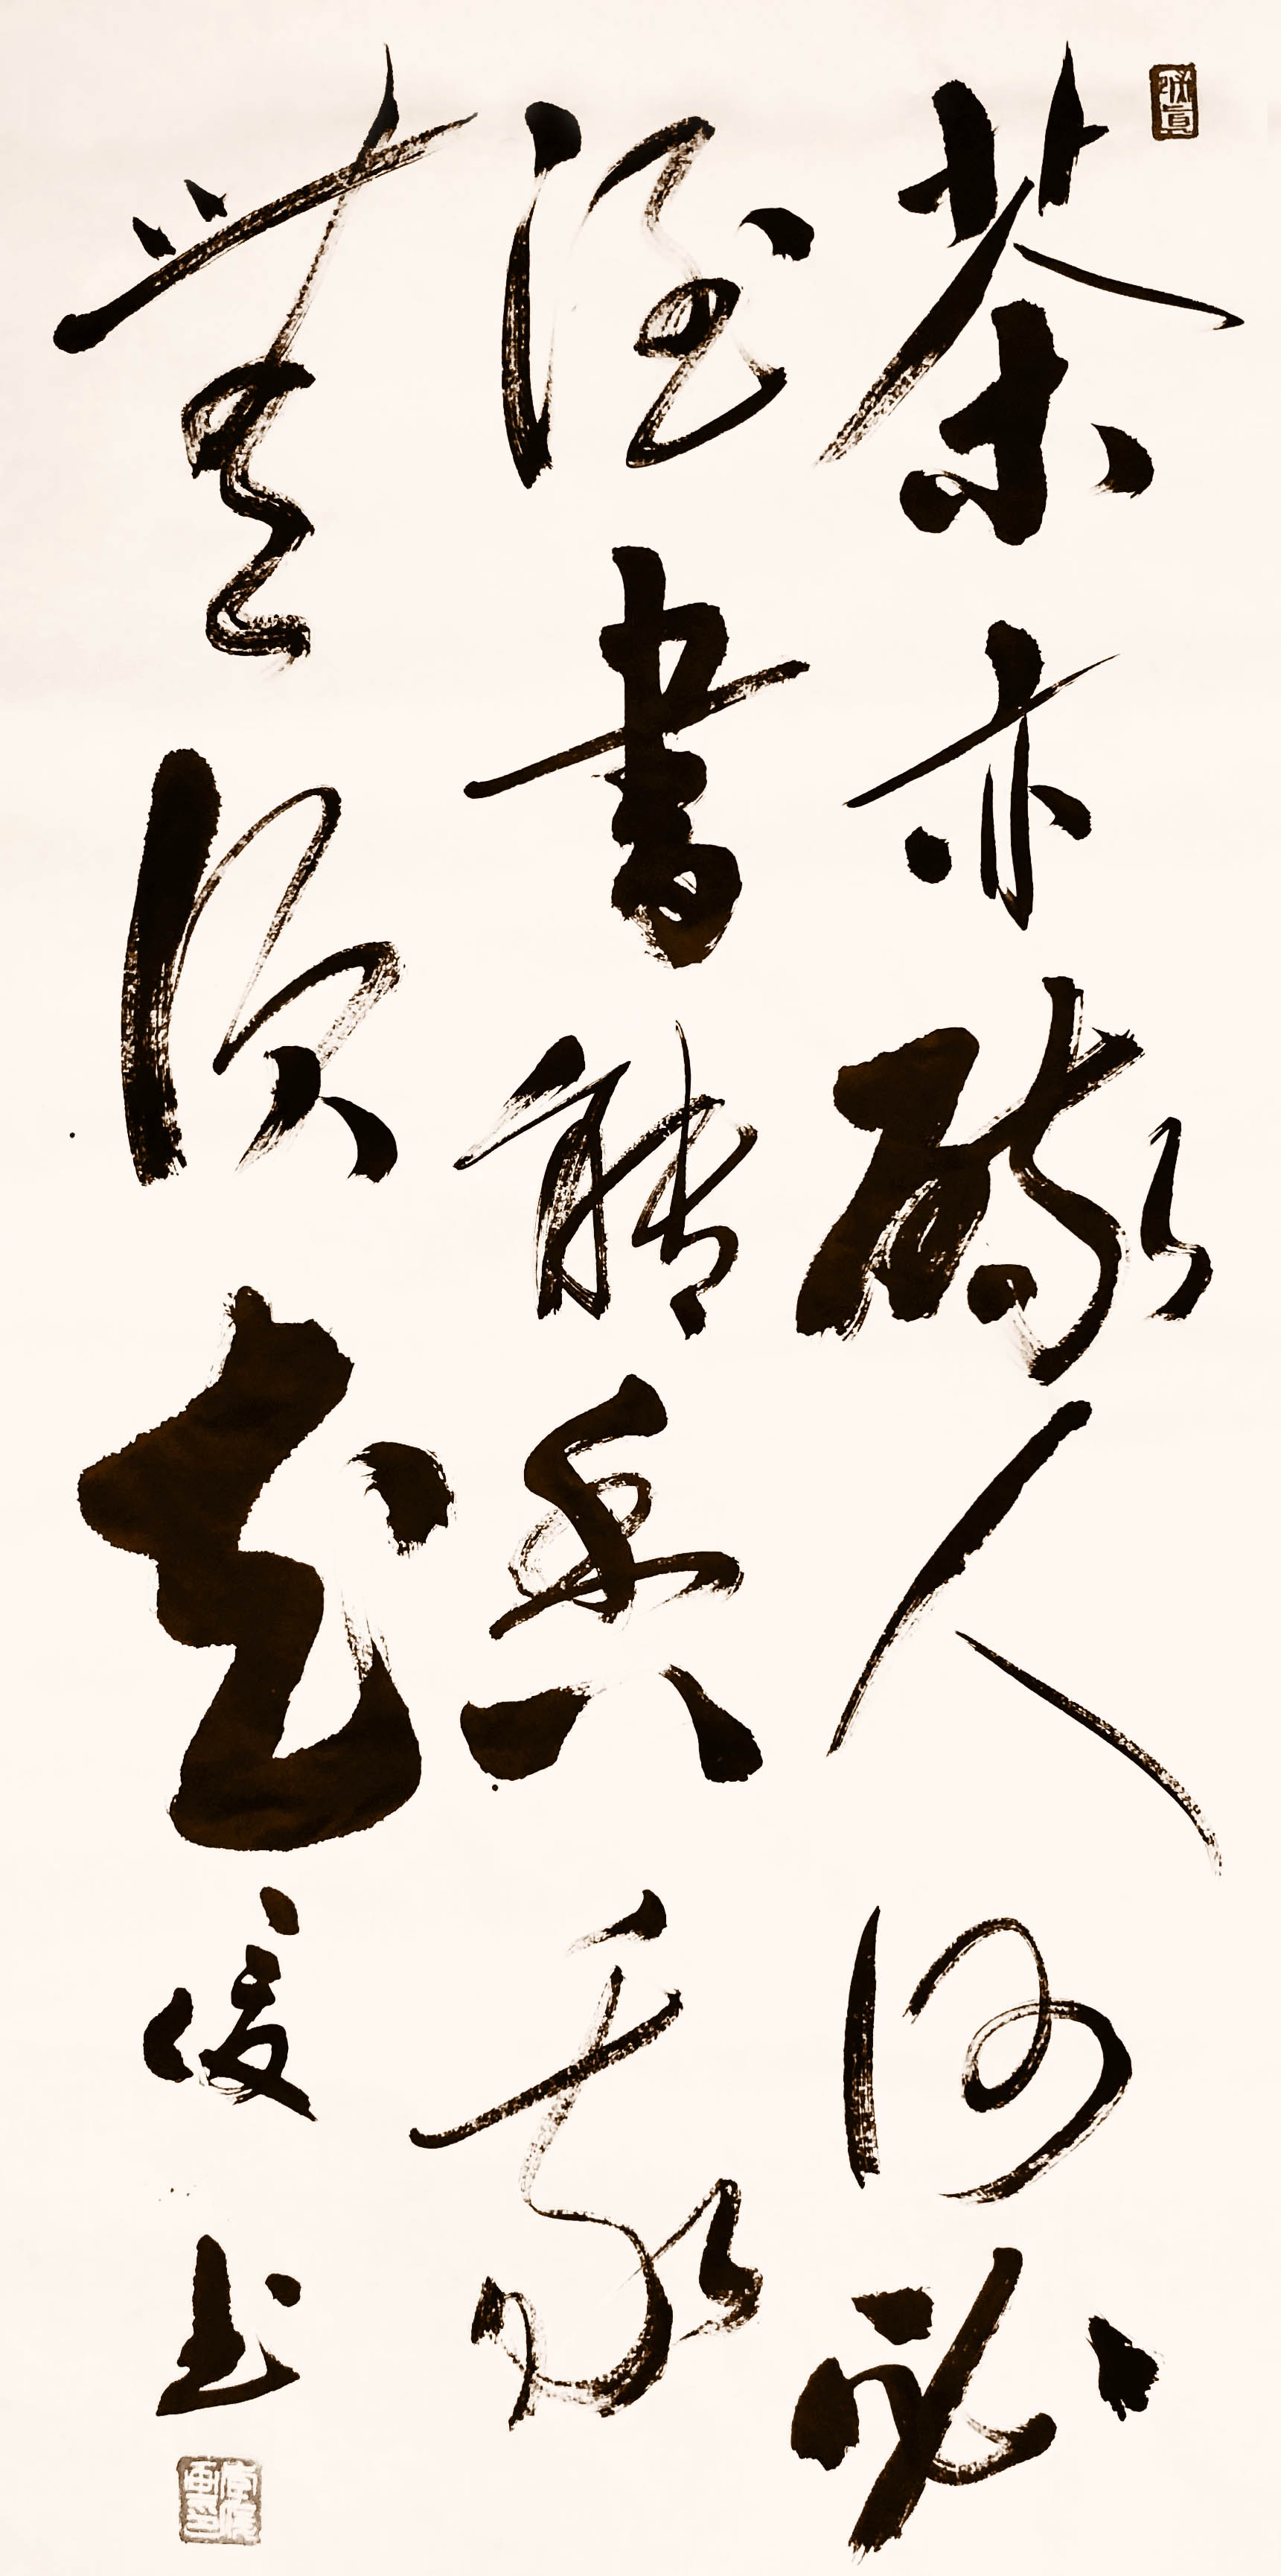 茶亦醉人何必
酒書能香我
無須花
俊书